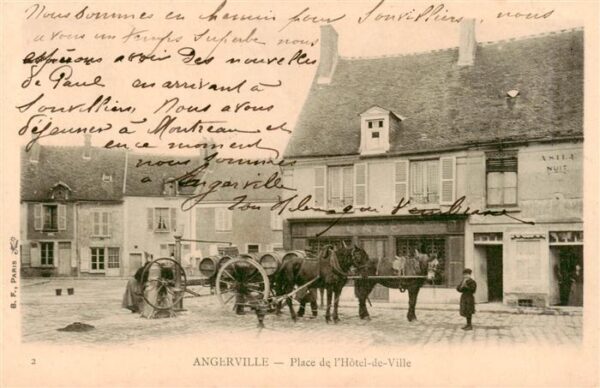 Nous sommes en chemin pour Souvilliers, nous
avons un temps superbe nous
espérons avoir des nouvelles
de Paul en arrivant à
Souvilliers, Nous avons
déjeuner à Montreau et
en ce moment
nous sommes
à Angerville
ASILE
NUIT
B. F. PARIS
2 ANGERVILLE — Place de l'Hôtel-de-Ville